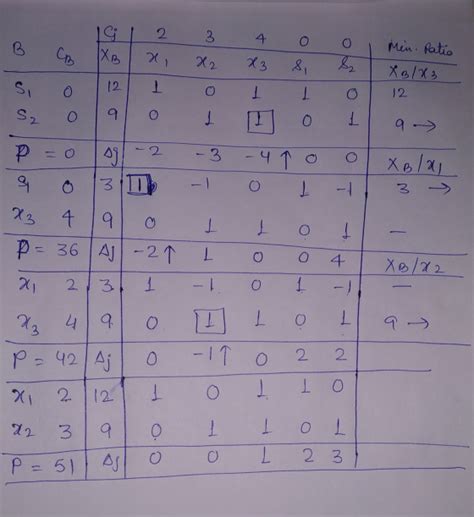 Cj 2 3 4 0 0 Min. Ratio
B CB XB x1 x2 x3 s1 s2 XB/x3
S1 0 12 1 0 1 1 0 12
S2 0 9 0 1 1 0 1 9 →
P = 0 Δj -2 -3 -4 ↑ 0 0 XB/x1
S1 0 3 1 -1 0 1 -1 3 →
x3 4 9 0 1 1 0 1 —
P = 36 Δj -2 ↑ 1 0 0 4 XB/x2
x1 2 3 1 -1 0 1 -1 —
x3 4 9 0 1 1 0 1 9 →
P = 42 Δj 0 -1 ↑ 0 2 2
x1 2 12 1 0 1 1 0
x2 3 9 0 1 1 0 1
P = 51 Δj 0 0 1 2 3